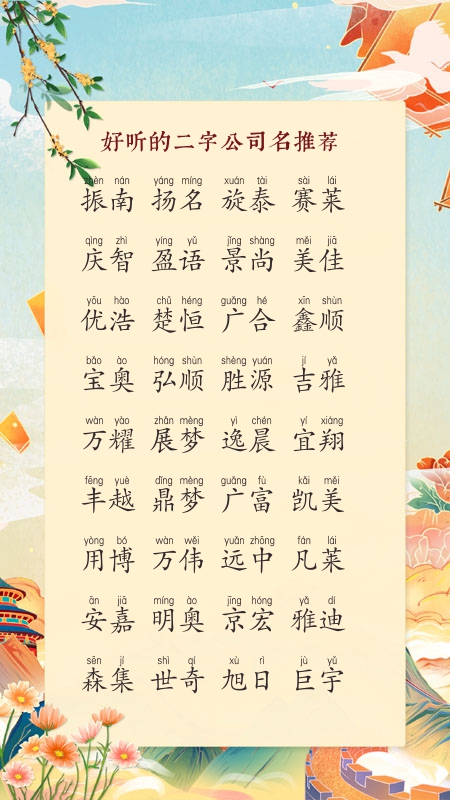 好听的二字公司名推荐
zhèn nán yáng míng xuán tài sài lái
振南 扬名 旋泰 赛莱
qìng zhì yíng yǔ jǐng shàng měi jiā
庆智 盈语 景尚 美佳
yōu hào chǔ héng guǎng hé xīn shùn
优浩 楚恒 广合 鑫顺
bǎo ào hóng shùn shèng yuán jí yǎ
宝奥 弘顺 胜源 吉雅
wàn yào zhǎn mèng yì chén yí xiáng
万耀 展梦 逸晨 宜翔
fēng yuè dǐng mèng guǎng fù kǎi měi
丰越 鼎梦 广富 凯美
yòng bó wàn wěi yuǎn zhōng fán lái
用博 万伟 远中 凡莱
ān jiā míng ào jīng hóng yǎ dí
安嘉 明奥 京宏 雅迪
sēn jí shì qí xù rì jù yǔ
森集 世奇 旭日 巨宇